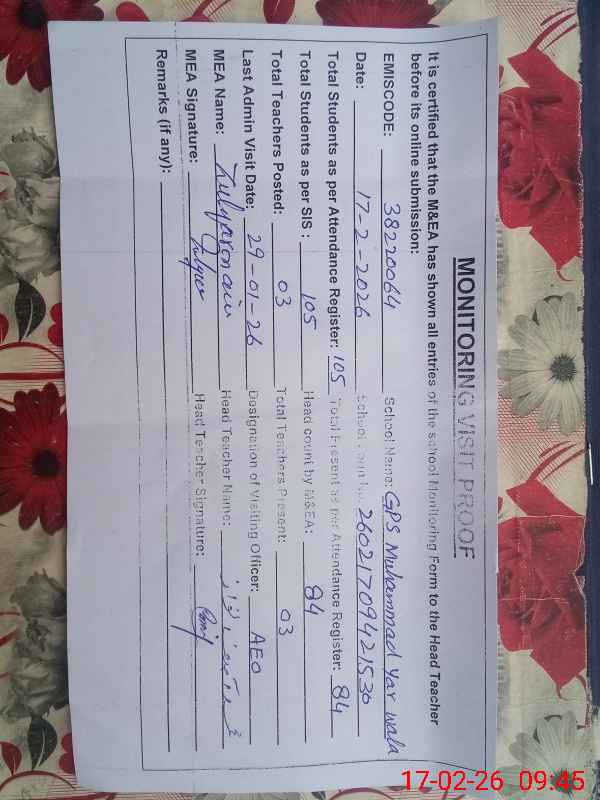 MONITORING VISIT PROOF
It is certified that the M&EA has shown all entries of the school Monitoring Form to the Head Teacher
before its online submission:
EMISCODE: 38220064 School Name: GPS Muhammad Yar wala
Date: 17-2-2026 School Form No. 26021709421530
Total Students as per Attendance Register: 105 Total Present as per Attendance Register: 84
Total Students as per SIS: 105 Head count by M&EA: 84
Total Teachers Posted: 03 Total Teachers Present: 03
Last Admin Visit Date: 29-01-26 Designation of Visiting Officer: AEO
MEA Name: Zulqarnain Head Teacher Name:
MEA Signature: Head Teacher Signature:
Remarks (if any):
17-02-26 09:45